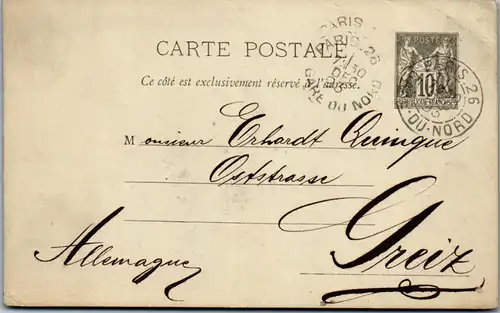 CARTE POSTALE
Ce côté est exclusivement réservé à l'adresse.
POSTE
10
RÉPUBLIQUE FRANÇAISE
PARIS 26
GARE DU NORD
PARIS 26
DU-NORD
Monsieur Erhardt Quinque
Oststrasse
Greiz
Allemagne